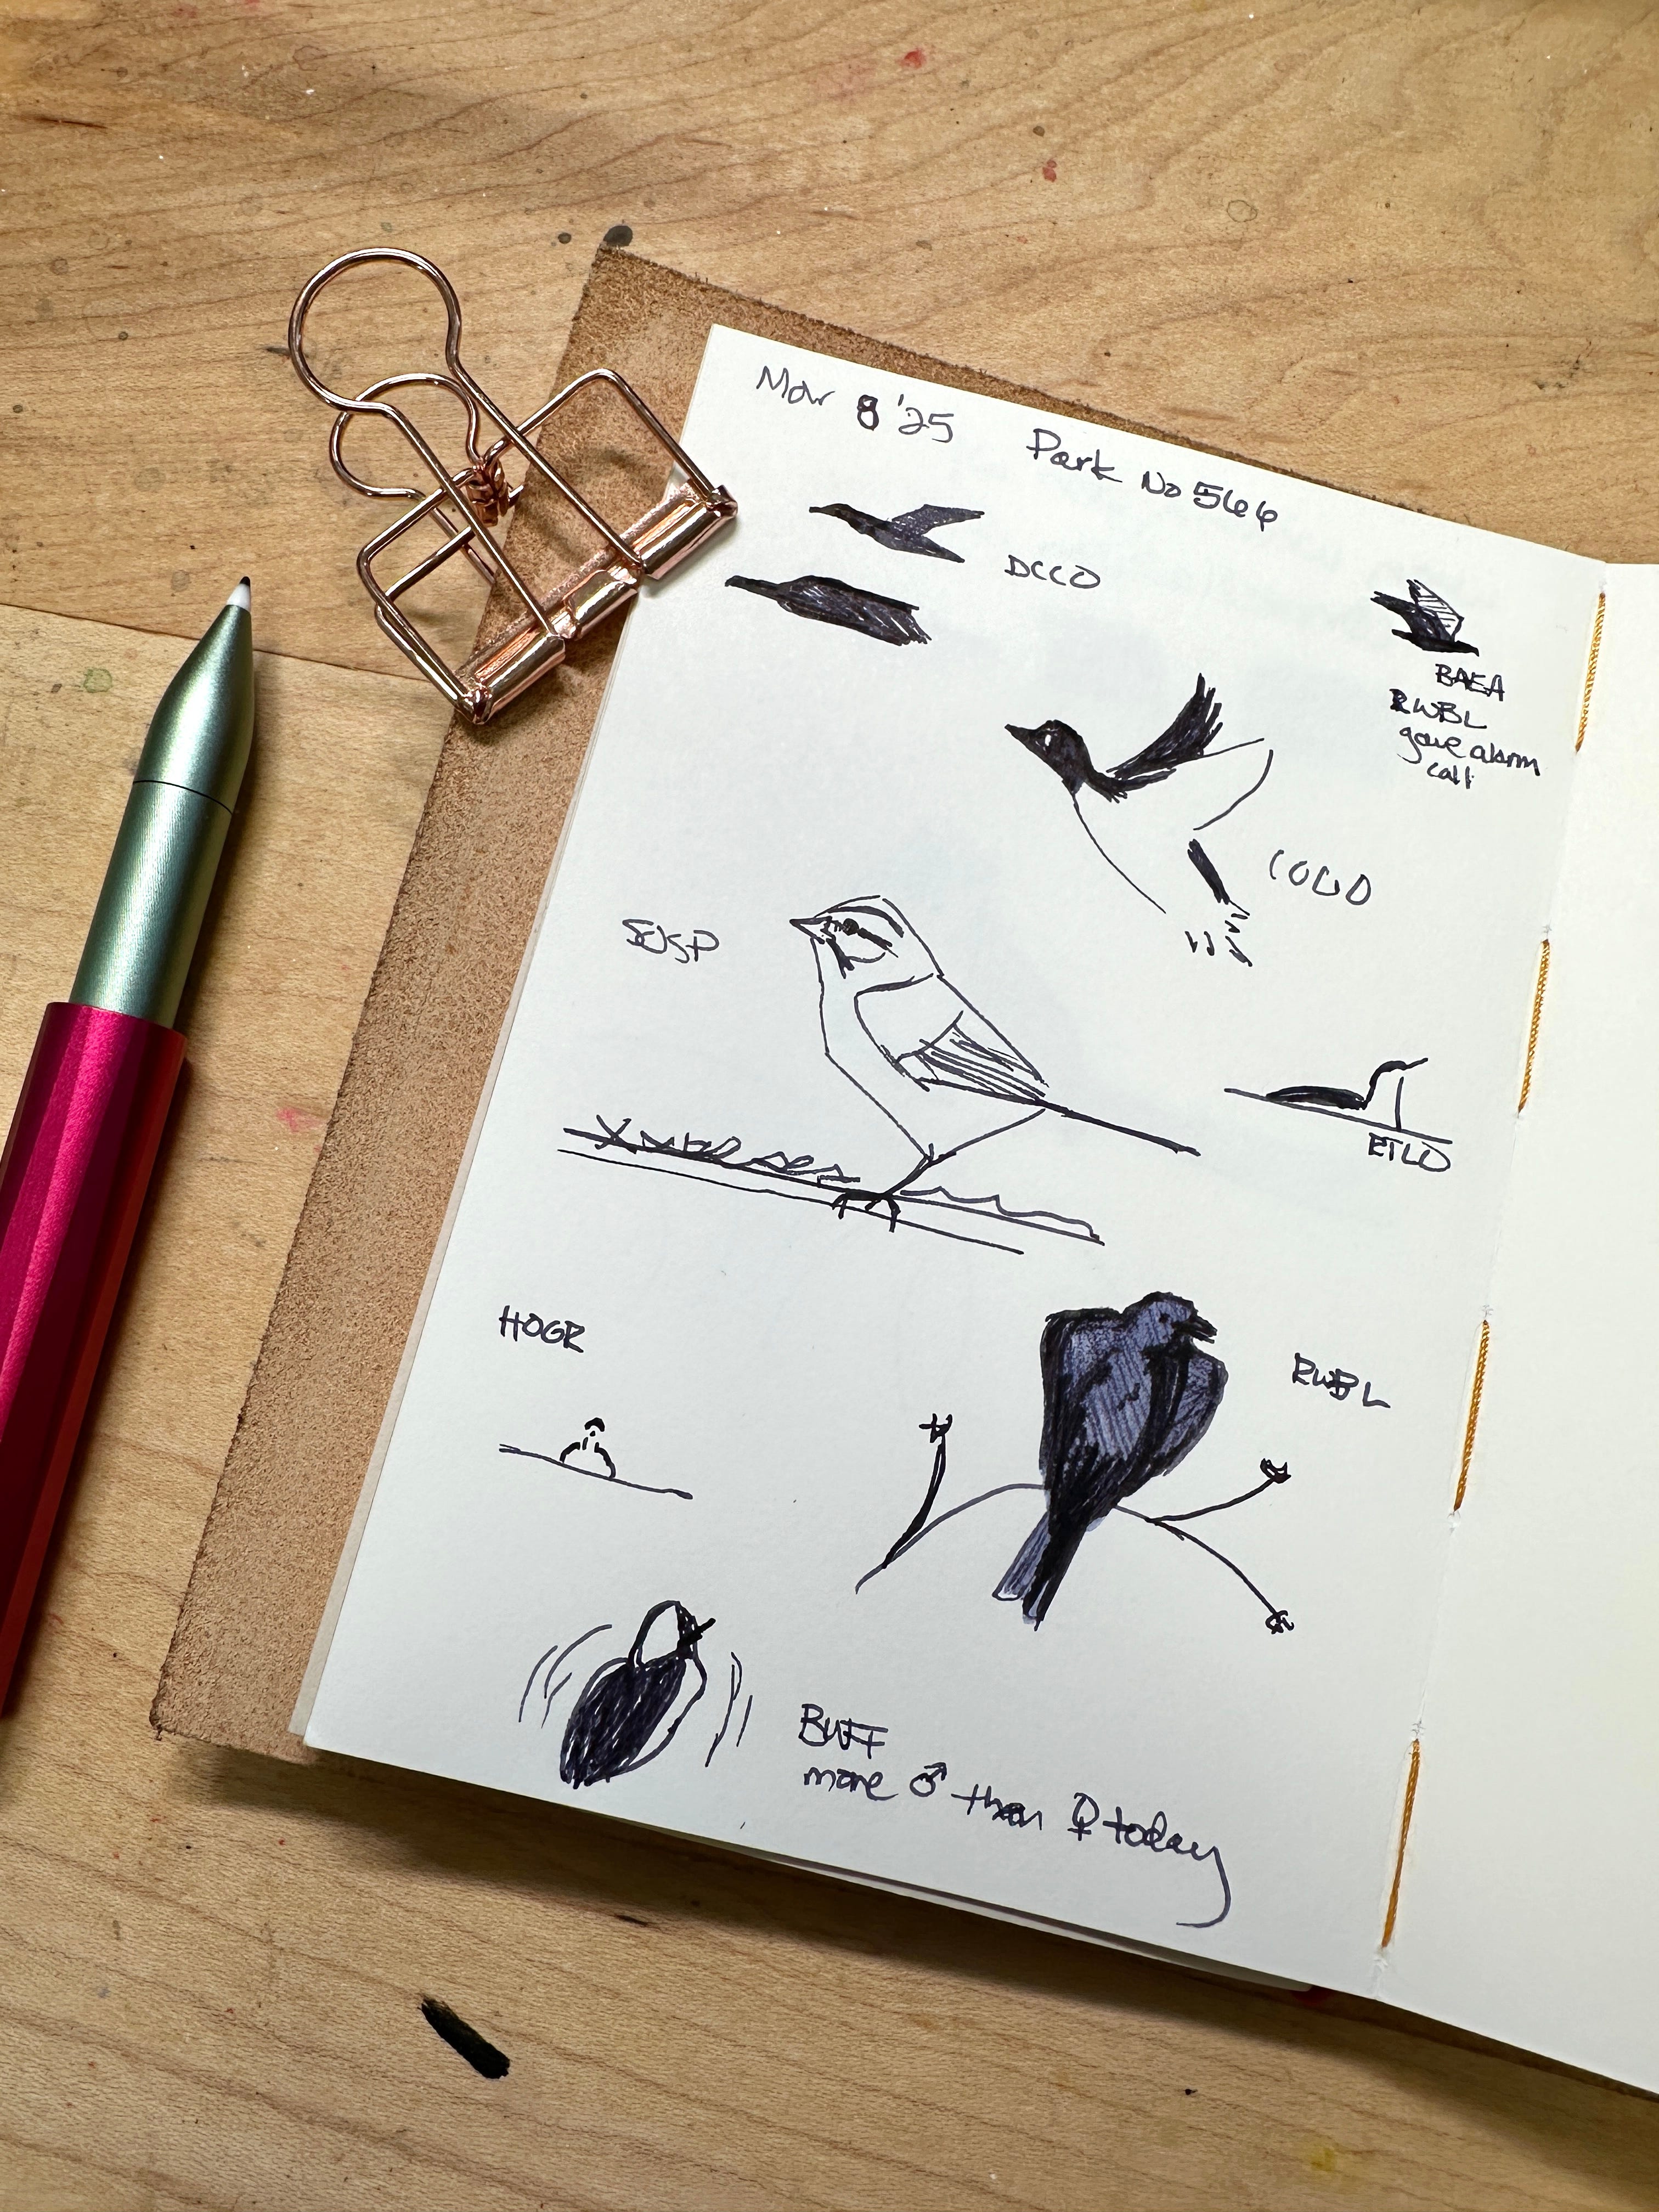 Mar 8 '25 Park No 566
DCCO
BAEA
RWBL
gave alarm
call
COLO
SOSP
RTLO
HOGR
RWBL
BUFF
more ♂ than ♀ today